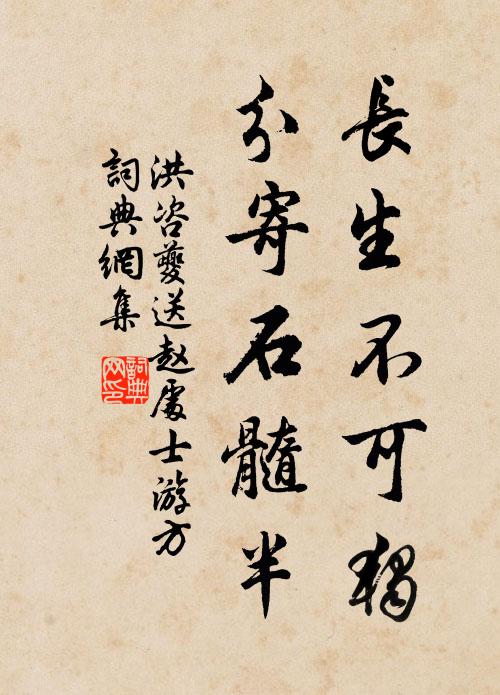 長生不可獨
分寄石髓半
洪咨夔送赵處士游方
詞典網集
詞典网印